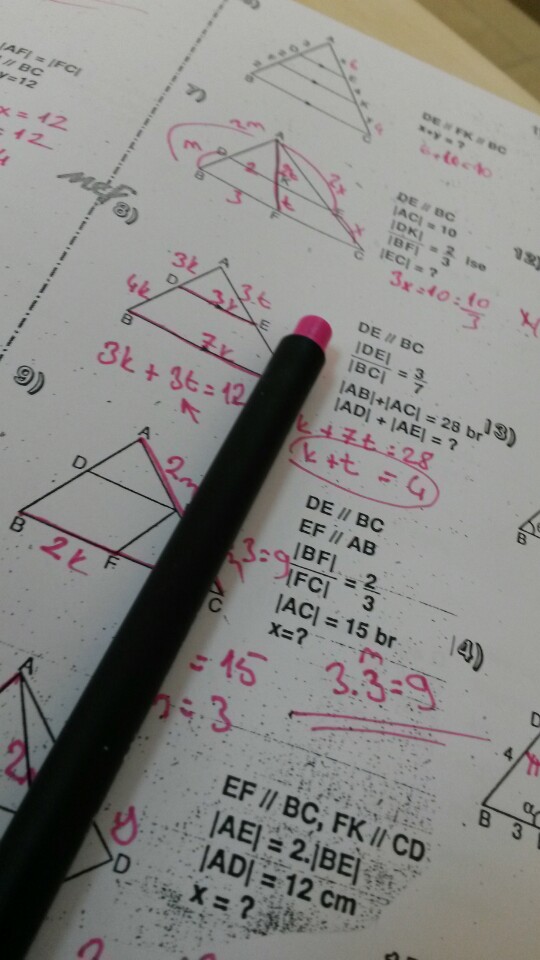 |AF| = |FC|
// BC
y=12
x = 12
= 12
4
A
D
E
B
K
C
DE // FK // BC
x+y = ?
7)
2m
A
m
D
2
K
2x
B
3
F
t
x
C
DE // BC
|AC| = 10
|DK|
|BF|
= 2
3
ise
|EC| = ?
3x=10=10
3
12)
8)
3k
A
D
4k
3k
3t
E
B
7k
3k + 3t = 12
DE // BC
|DE|
|BC|
= 3
7
|AB|+|AC| = 28 br
|AD| + |AE| = ?
k + 7t = 28
k + t = 4
13)
B
9)
A
D
2m
B
2k
F
C
3=9
DE // BC
EF // AB
|BF|
|FC|
= 2
3
|AC| = 15 br
x=?
m
3.3=9
= 15
= 3
14)
D
4
m
α
B
3
A
2
y
D
EF // BC, FK // CD
|AE| = 2.|BE|
|AD| = 12 cm
x = ?